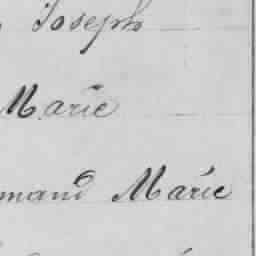 Joseph
Marie
mand Marie